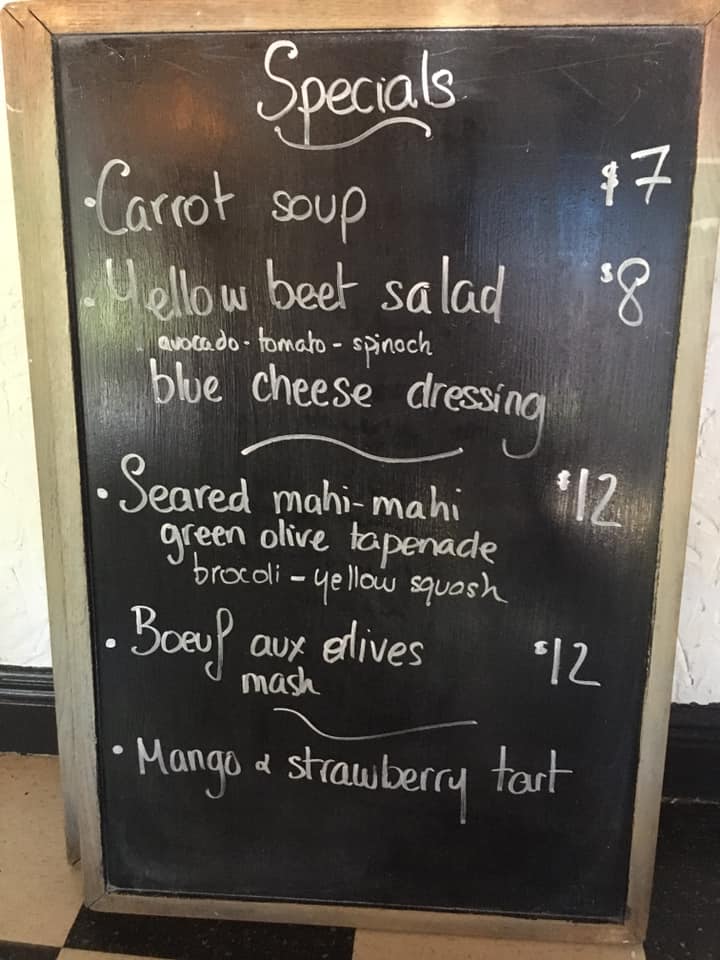 Specials
• Carrot soup $7
• Yellow beet salad $8
avocado - tomato - spinach
blue cheese dressing
• Seared mahi-mahi $12
green olive tapenade
brocoli - yellow squash
• Boeuf aux olives $12
mash
• Mango & strawberry tart